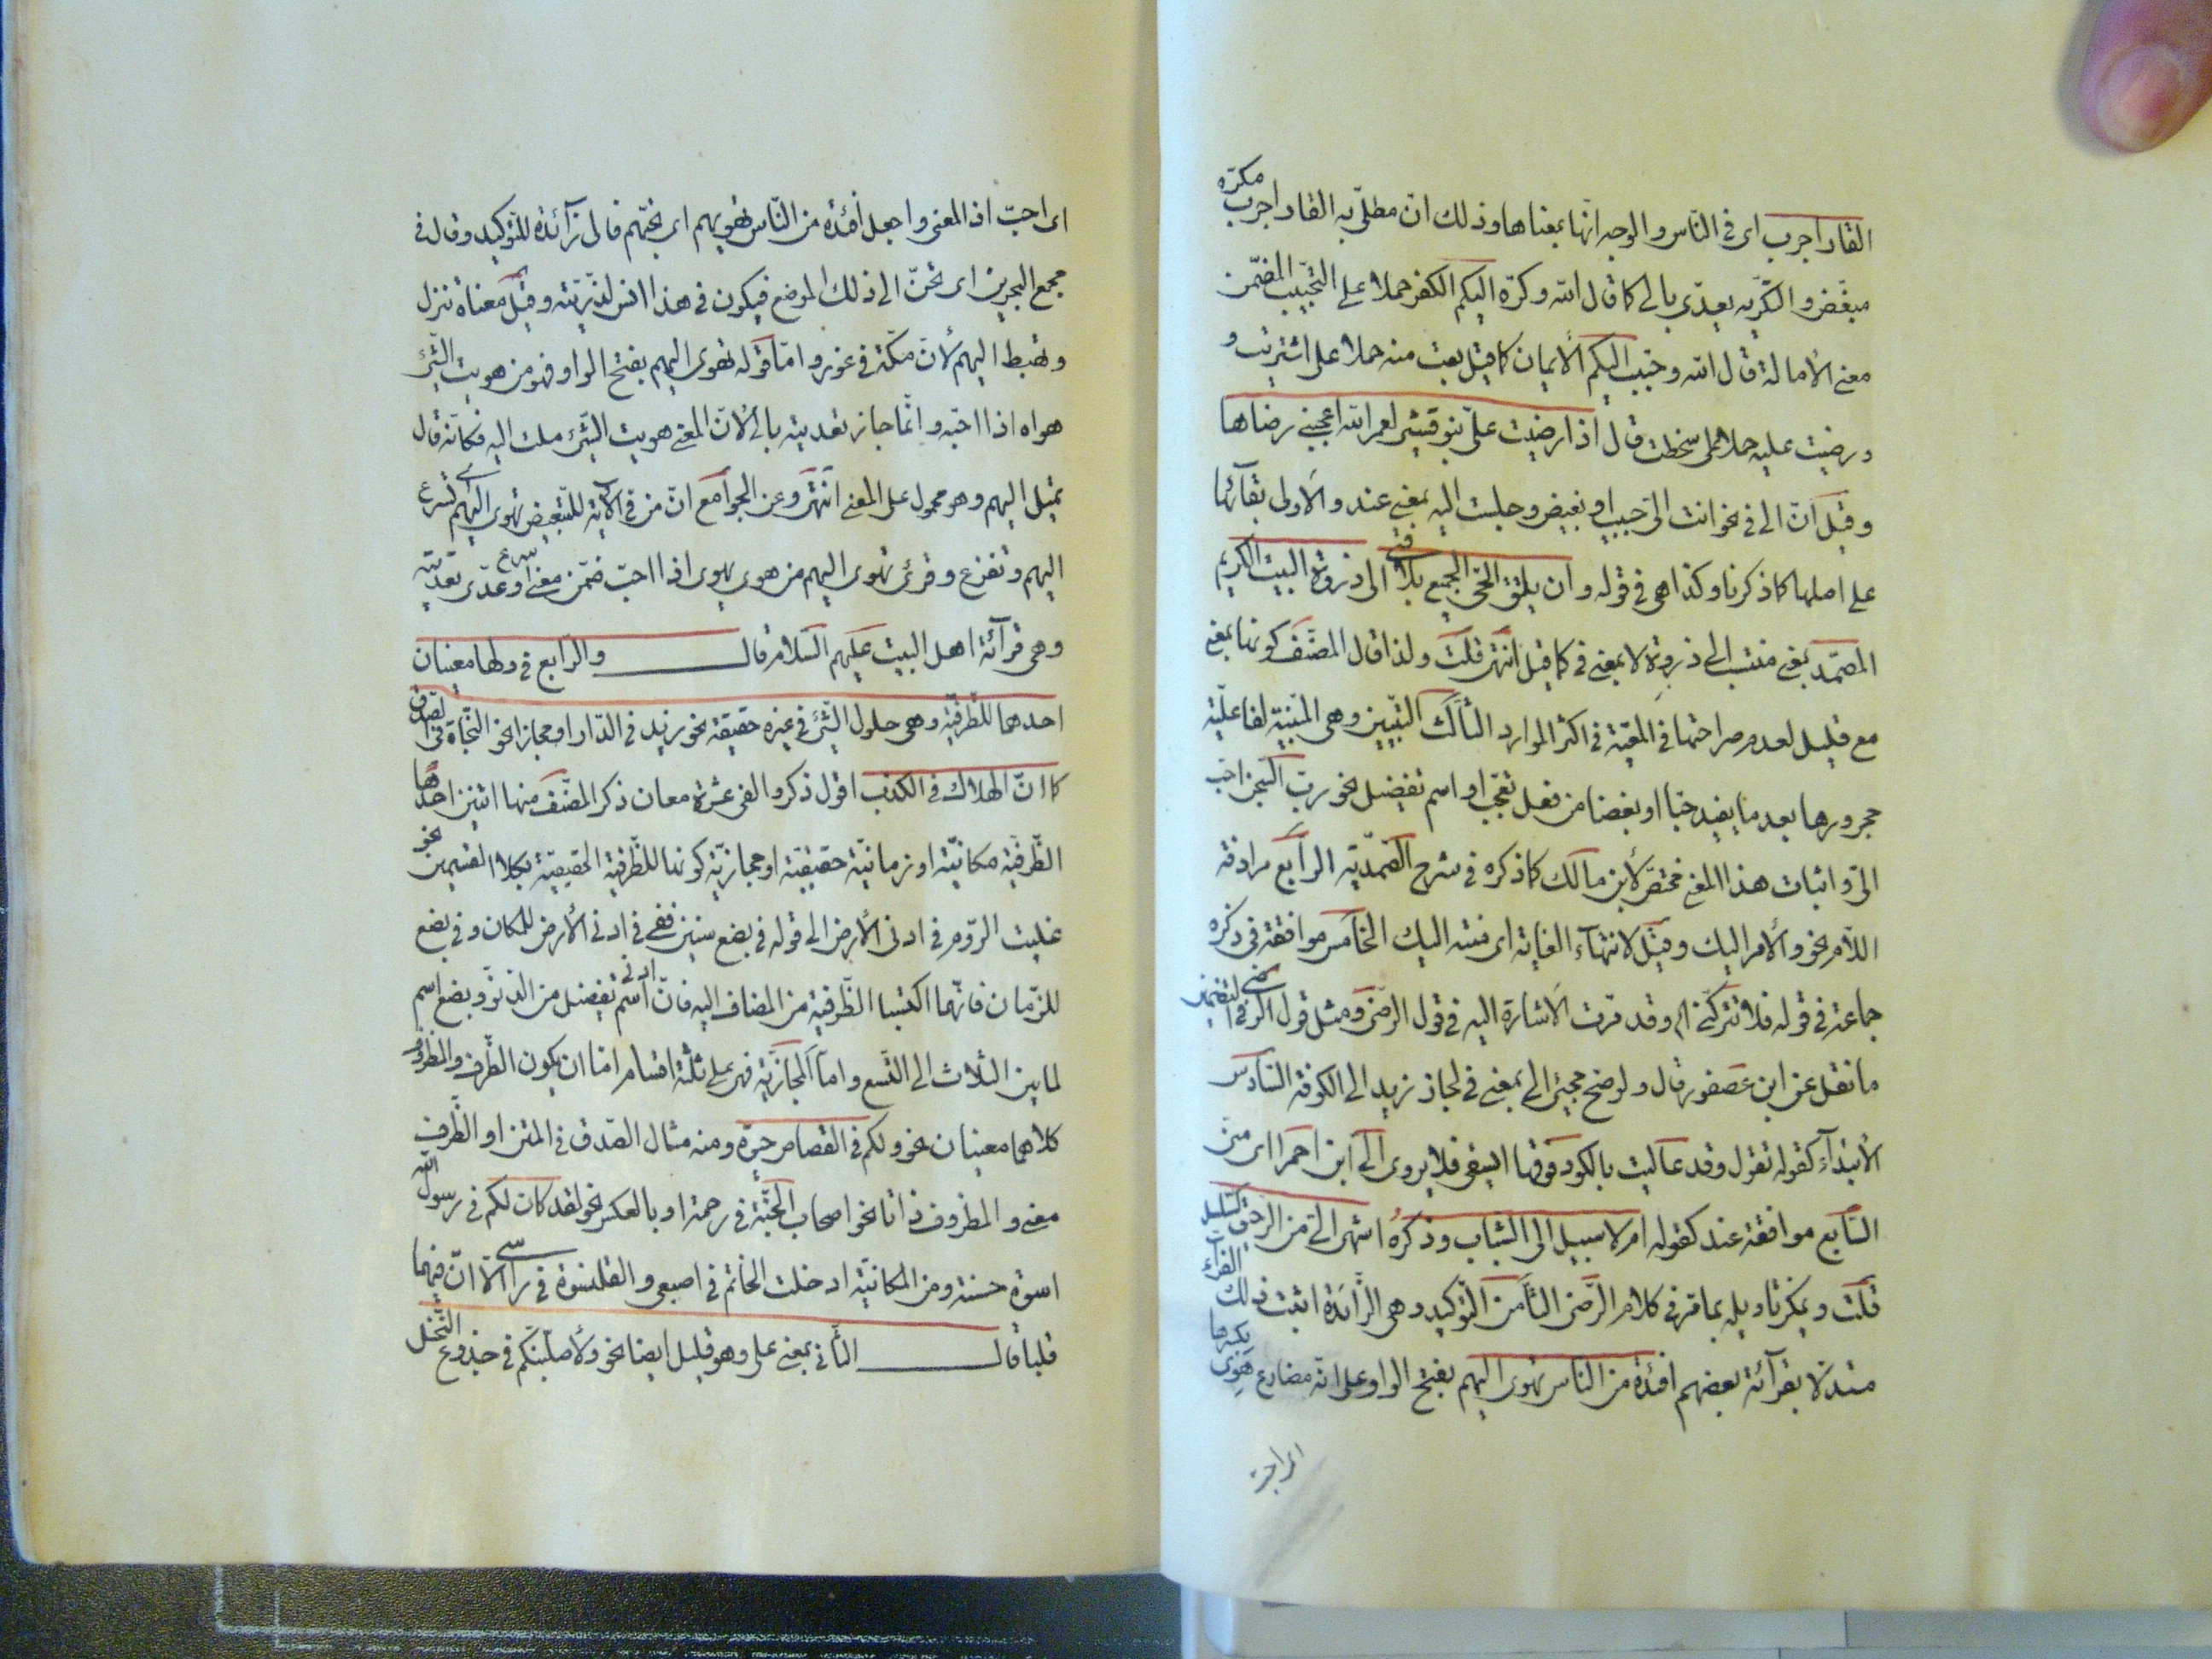 القار اجرب اى فى الناس والوجه انّها بمعناها وذلك انّ مطلّى به القار اجرب مكرّه
مبغّض والتكريه يعدّى بالى كما قال الله وكرّه اليكم الكفر حملا على التحبيب المضمّن
معنى الأمالة قال الله وحبّب اليكم الأيمان كما قيل بعت منه حملا على اشتريت و
رضيت عليه حملا على سخطت قال اذا رضيت علىّ بنو قشير لعمر الله اعجبنى رضاها
وقيل انّ الى فى نحو انت الىّ حبيب او بغيض وجلست اليه بمعنى عند والأولى بقائها
على اصلها كما ذكرنا وكذا هى فى قوله وان يلتق الحىّ الجميع تلاقنى الى ذروة البيت الكريم
المصمّد بمعنى منتسب الى ذروة لا بمعنى فى كما قيل انتهى قلت ولذا قال المصنّف كونها بمعنى
مع قليل لعدم صراحتها فى المعيّة فى اكثر الموارد الثالث التبيين وهى المبيّنة لفاعليّة
مجرورها بعد ما يفيد حبّا او بغضا من فعل تعجّب او اسم تفضيل نحو ربّ السجن احبّ
الىّ واثبات هذا المعنى مختصّ لأبن مالك كما ذكره فى شرح الصّمديّة الرابع مرادفة
اللّام نحو والأمر اليك وقيل لانتهاء الغاية اى منته اليك الخامس موافقة فى ذكره
جماعة فى قوله فلا تتركنّى اه وقد مرّت الاشارة اليه فى قول الرّضى ومثل قول الرضى فى التضمين
ما نقل عن ابن عصفور قال ولو صحّ مجيئ الى بمعنى فى لجاز زيد الى الكوفة السّادس
الأبتداء كقوله تقول وقد عاليت بالكور فوقها ايسقى فلا يروى الىّ ابن احمرا اى منّى
السّابع موافقة عند كقوله ام لا سبيل الى الشباب وذكره اشهى الىّ من الرحيق السلسل
قلت ويمكن تاويله بما مرّ فى كلام الرّضى الثّامن التّوكيد وهى الزّائدة اثبت ذلك الفرّاء
مستدلا بقرآئة بعضهم افئدة من الناس تهوى اليهم بفتح الواو على انّه مضارع هوى بكسرها
اى احبّ
اى احبّ اذ المعنى واجعل أفئدة من النّاس تهويهم اى تحبّهم فالى زآئدة للتّوكيد وقال فى
مجمع البحرين اى تحنّ الى ذلك الموضع فيكون فى هذا انس لذرّيّته وقيل معناه تنزل
وتهبط اليهم لأنّ مكّة فى غور وامّا قوله تهوى اليهم بفتح الواو فهو من هويت الشّئ
هواه اذا احبّه وانّما جاز تعديته بالى لأنّ المعنى هويت الشئ ملت اليه فكانّه قال
تميل اليهم وهو محمول على المعنى انتهى وعن الجوامع انّ من فى الآية للتّبعيض تهوى اليهم اى تسرع
اليهم وتفزع وقرئ تهوى اليهم من هوى يهوى اذا احبّ ضمّن معنى اسرع وعدّى تعديته
وهى قرآئة اهل البيت عليهم السّلام قال والرّابع فى ولها معنيان
احدهما للظّرفيّة وهى حلول الشّئ فى غيره حقيقة نحو زيد فى الدّار او مجازا نحو النّجاة فى الصّدق
كما انّ الهلاك فى الكذب اقول ذكروا لفى عشرة معان ذكر المصنّف منها اثنين احدها
الظّرفيّة مكانيّة او زمانيّة حقيقيّة او مجازيّة كونها للظّرفيّة الحقيقيّة بكلا القسمين نحو
غلبت الرّوم فى ادنى الأرض الى قوله فى بضع سنين ففى فى ادنى الأرض للمكان وفى بضع
للزّمان فانّهما اكتسبا الظّرفيّة من المضاف اليه فانّ ادنى اسم تفضيل من الدّنوّ وبضع اسم
لما بين الثّلاث الى التّسع وامّا المجازيّة فهى على ثلثة اقسام امّا ان يكون الظّرف والمظروف
كلاهما معنيان نحو ولكم فى القصاص حيوة ومنه مثال الصّدق فى المتن او الظّرف
معنى والمظروف ذاتا نحو اصحاب الجنّة فى رحمة او بالعكس نحو لقد كان لكم فى رسول الله
اسوة حسنة ومن المكانيّة ادخلت الخاتم فى اصبعى والقلنسوة فى راسى الّا انّ فيهما
قلبا قال الثّانى بمعنى على وهو قليل ايضا نحو ولأصلّبنّكم فى جذوع النّخل